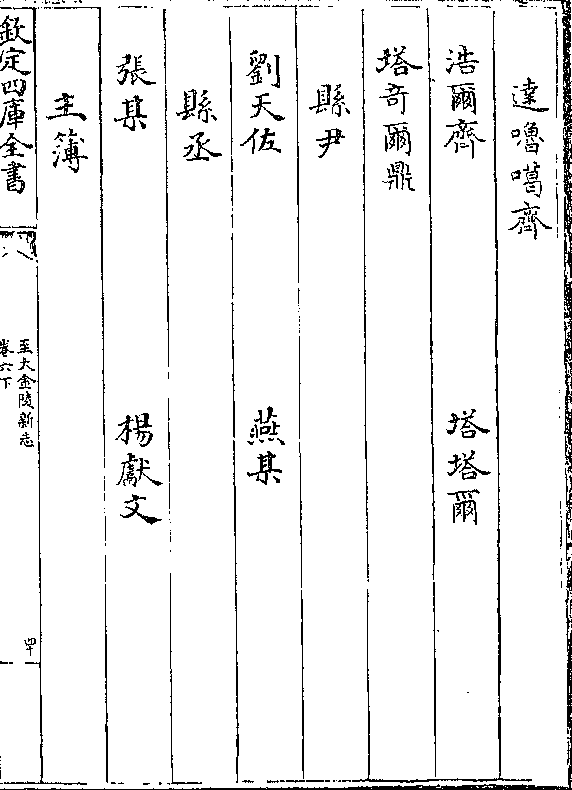 達嚕噶齊
浩爾齊　塔塔爾
塔奇爾鼎
縣尹
劉天佐　燕某
縣丞
張某　楊獻文
主簿
欽定四庫全書
至大金陵新志
卷六下
四十